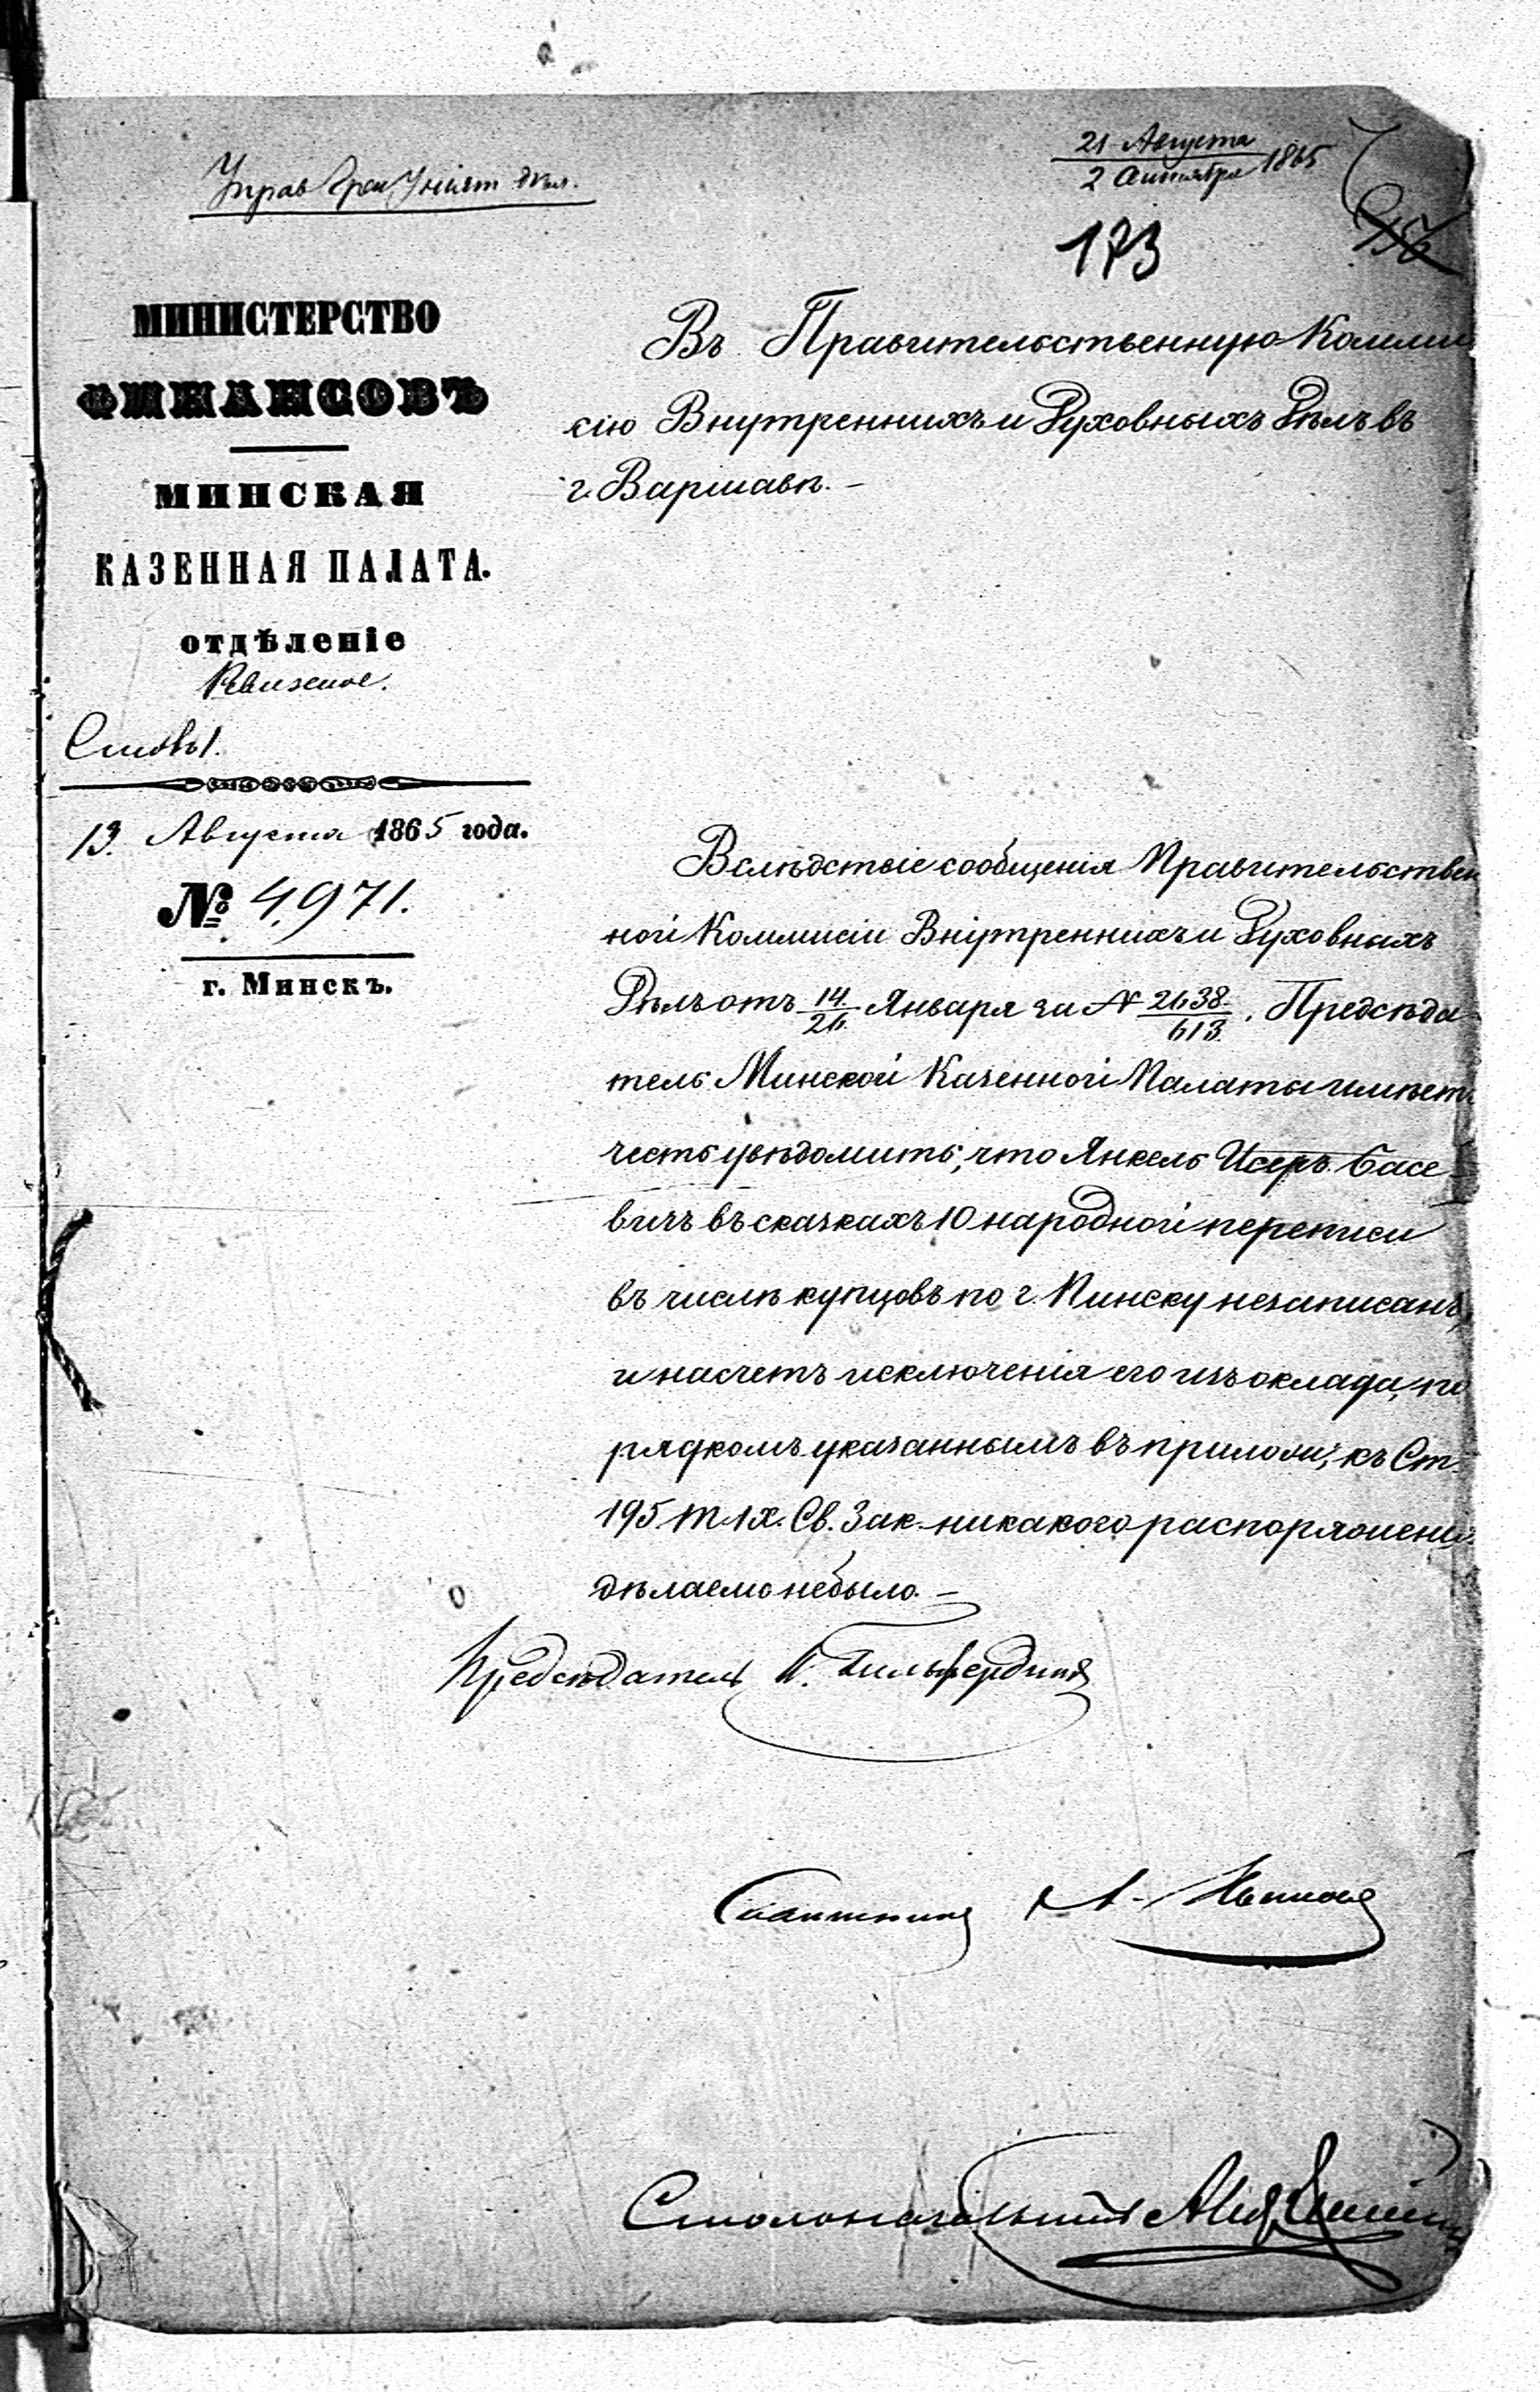 21 Августа
2 Сентября 1865
Управ Грек Уніят дѣл.
173
МИНИСТЕРСТВО
ФИНАНСОВЪ
МИНСКАЯ
КАЗЕННАЯ ПАЛАТА.
отдѣленіе
Ревизское.
Столъ 1.
13. Августа 1865 года.
№ 4,971.
г. Минскъ.
Въ Правительственную Комми
сію Внутреннихъ и Духовныхъ Дѣлъ въ
г. Варшавѣ. –
Вслѣдствіе сообщенія Правительствен
ной Коммисіи Внутреннихъ и Духовныхъ
Дѣлъ отъ 14/26 Января за № 2638/613. Предсѣда
тель Минской Казенной Палаты имѣетъ
честь увѣдомить, что Янкель Исеръ Басе
вичъ въ сказкахъ 10 народной переписи
въ числѣ купцовъ по г. Пинску незаписанъ,
и насчетъ исключенія его изъ оклада, по
рядкомъ указаннымъ въ прилож; къ Ст.
195. т. IX. Св. Зак. никакого распоряженія
дѣлаемо небыло. –
Предсѣдатель Гильфердингъ
Столоначальникъ